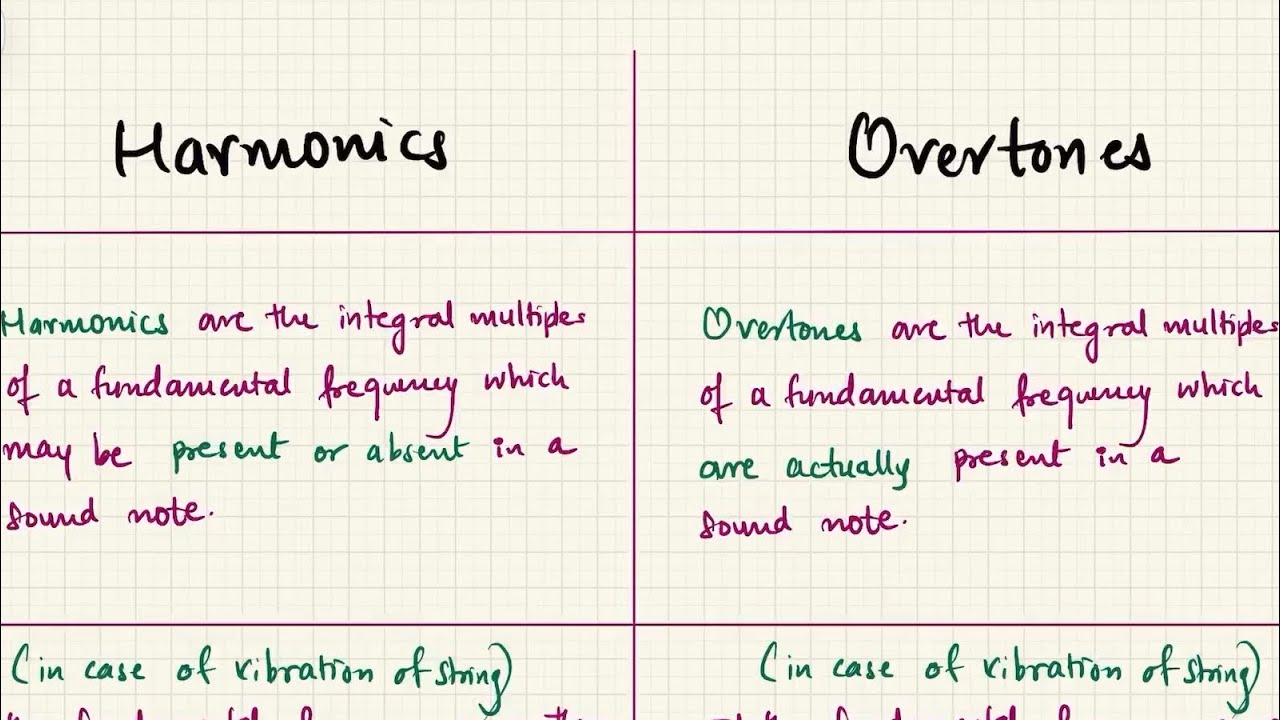 Harmonics
Overtones
Harmonics are the integral multiples
of a fundamental frequency which
may be present or absent in a
sound note.
Overtones are the integral multiples
of a fundamental frequency which
are actually present in a
sound note.
(in case of vibration of string)
(in case of vibration of string)